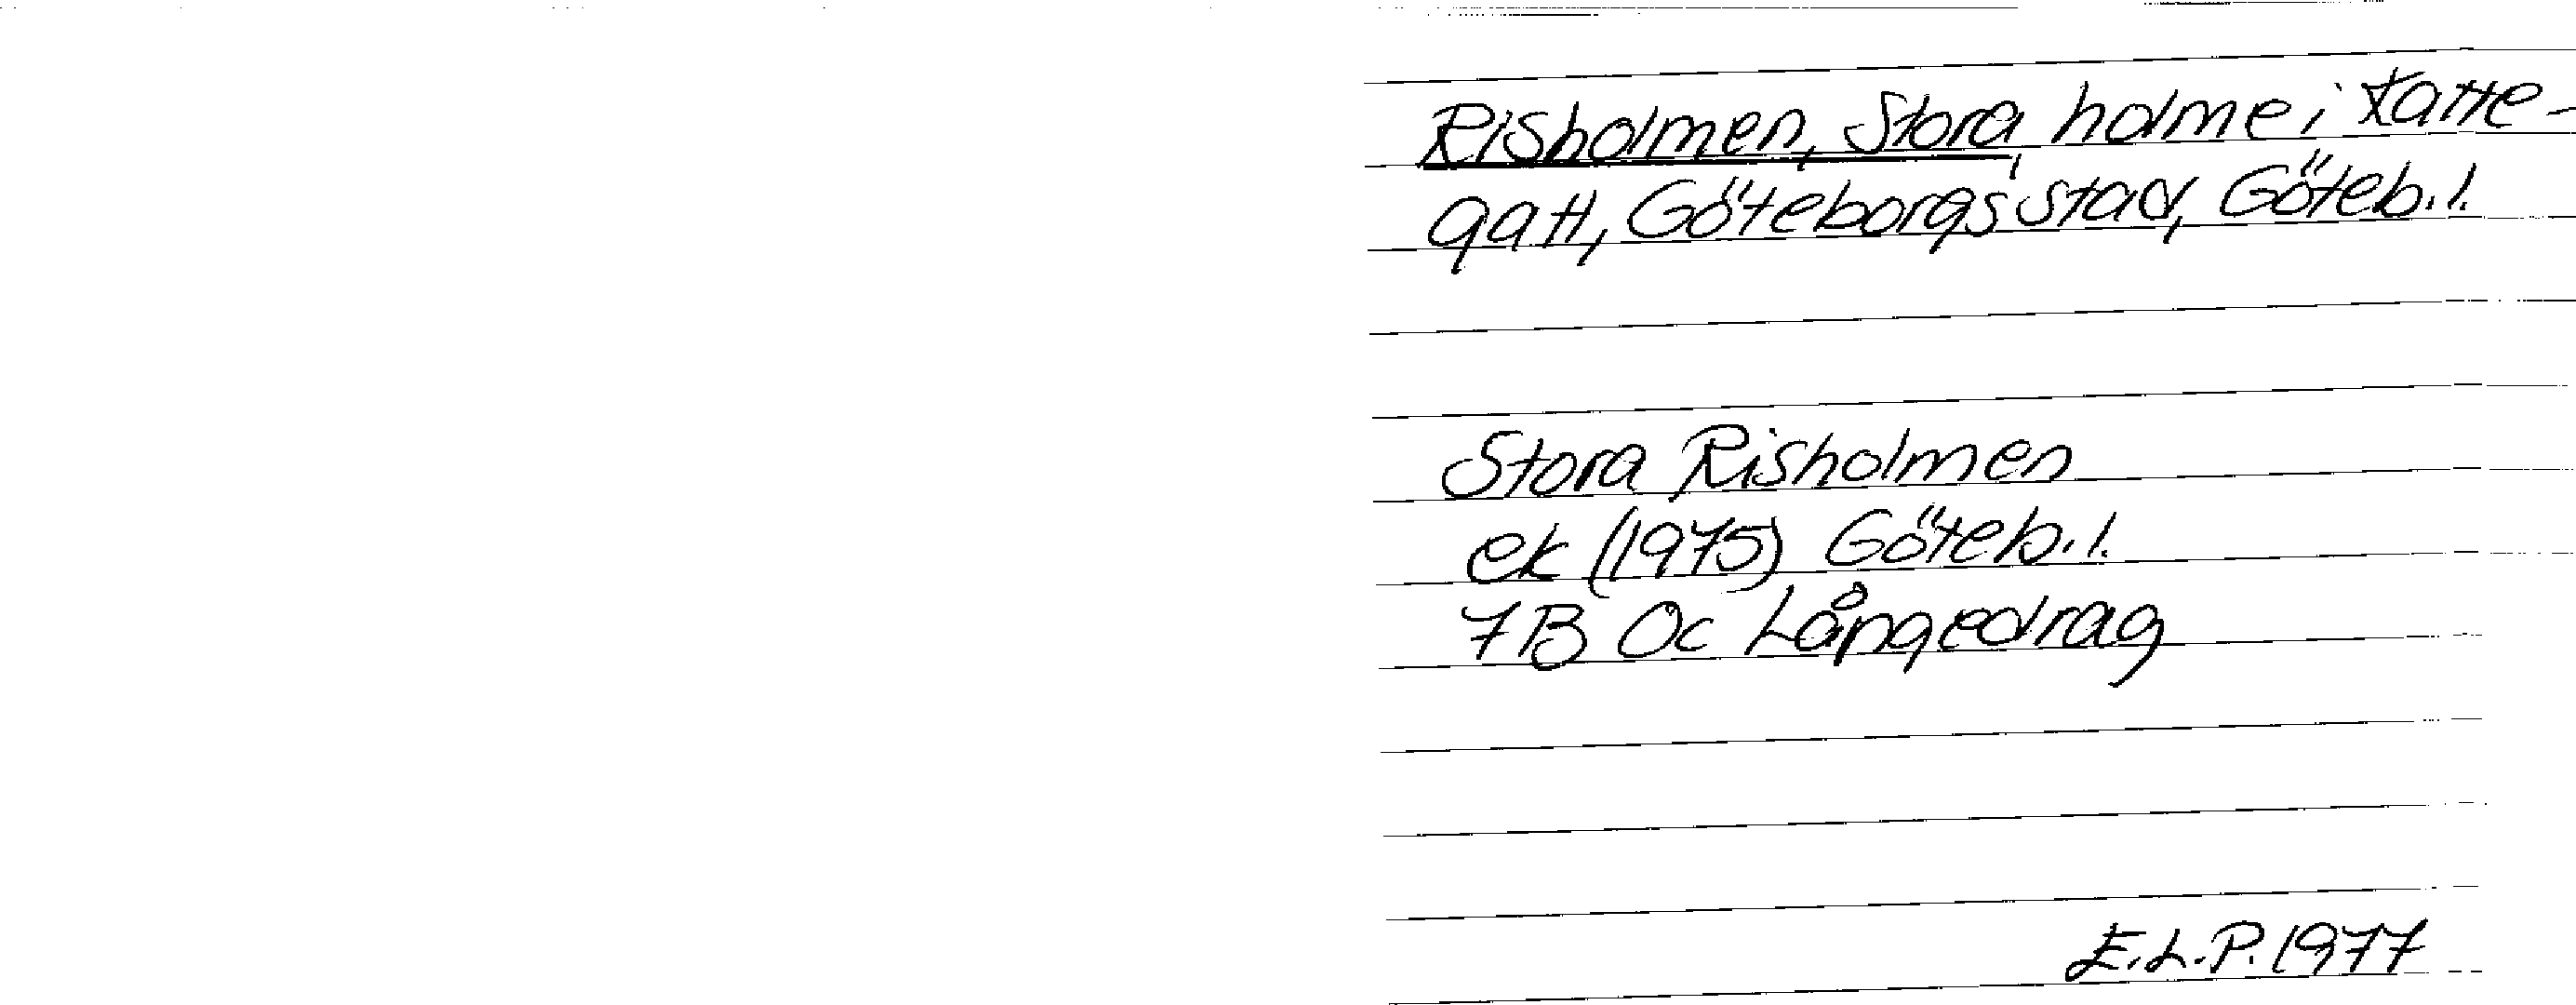 Risholmen, Stora, holme i Katte-
gatt, Göteborgs stad, Göteb.l.
Stora Risholmen
ek (1975) Göteb.l.
7B 0c Långedrag
E.L.P. 1977